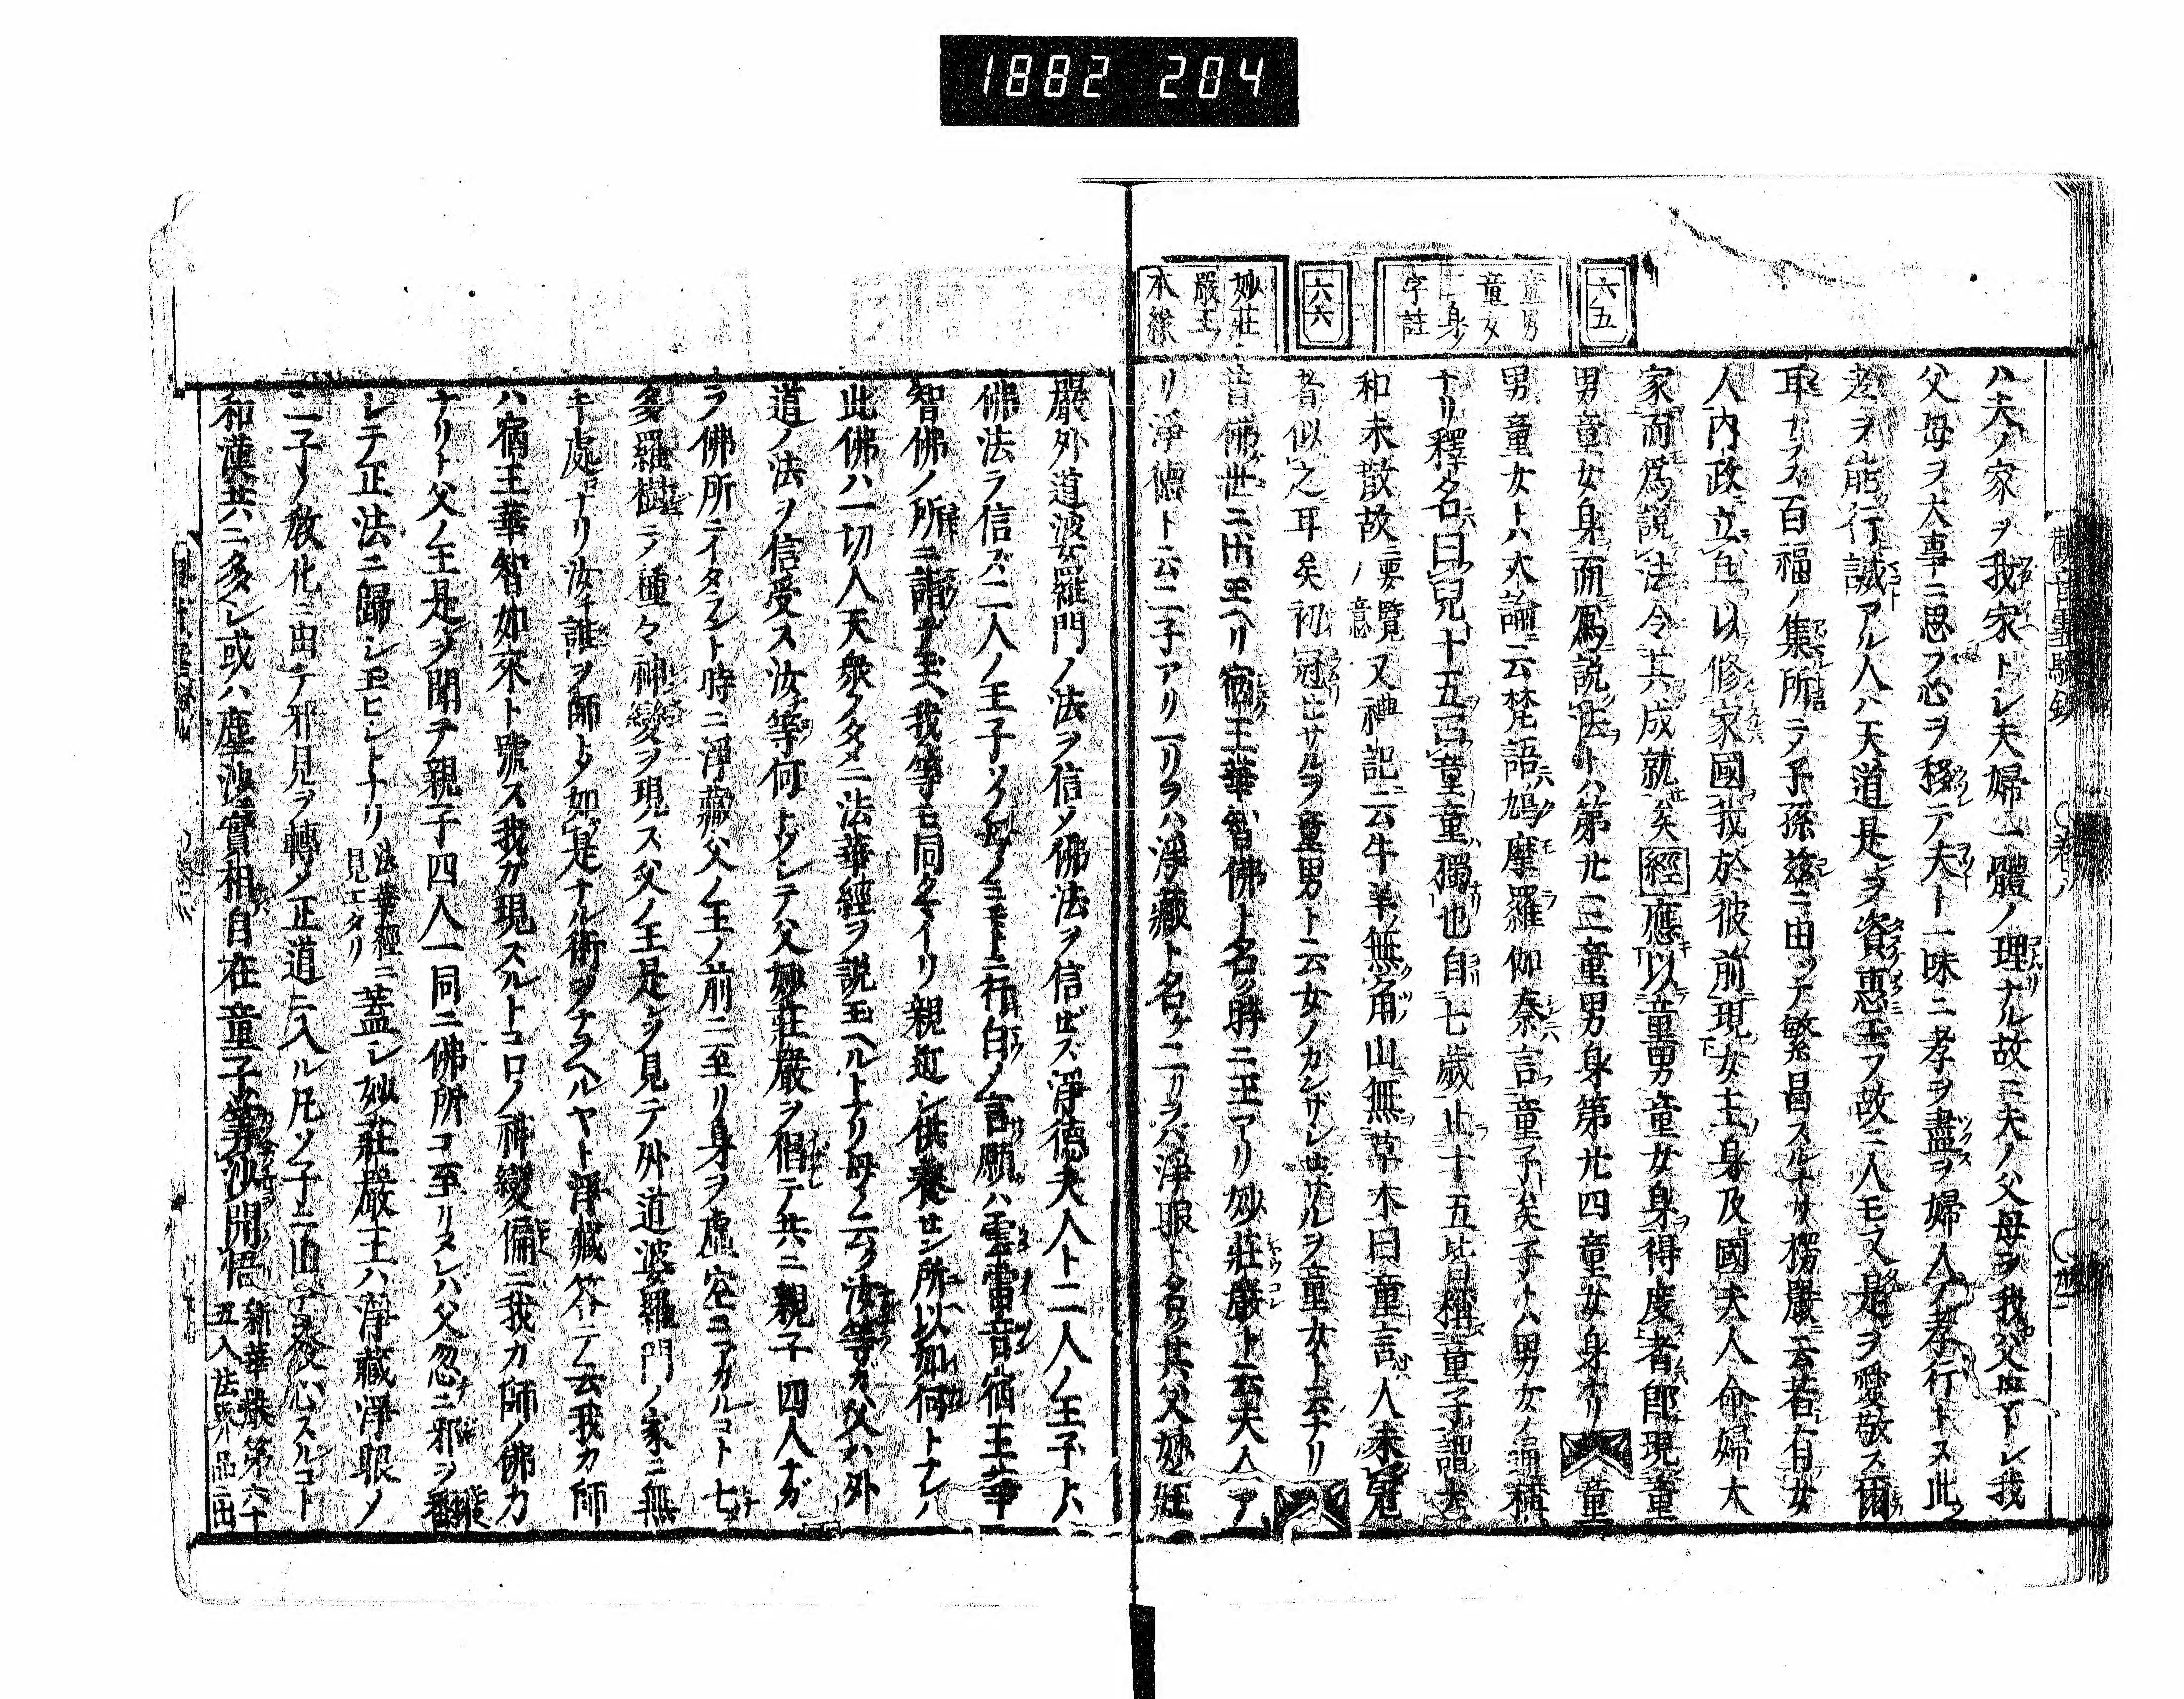 1882 204
六五
童男
童女
二身ノ
字註
六六
妙莊
嚴王ノ
本緣
ハ夫ノ家ヲ我家トシ夫婦一體ノ理ナル故ニ夫ノ父母ヲ我父母トシ我
父母ヲ大事ニ思フ心ヲ移テ夫ト一味ニ孝ヲ盡ヲ婦人ノ孝行トス此
孝ヲ能行誠アル人ハ天道是ヲ資惠玉フ故ニ人モ又是ヲ愛敬ス爾
耳ナラス百福ノ集所ラテ子孫茲ニ由ツテ繁昌スルナリ楞嚴云若有女
人內政立身以修家國我於彼前現女主身及國夫人命婦大
家而爲說法令其成就矣經應以童男童女身得度者即現童
男童女身而爲說法トハ第廿三童男身第廿四童女身ナリ童
男童女トハ大論ニ云梵語鳩摩羅伽秦言童子矣子トハ男女ノ通稱
ナリ釋名曰兒十五曰童童獨也自七歲止十五皆稱童子謂太
和未散故ニ要覽ノ意又禮記云牛羊無角山無草木曰童言人未冠
者似之耳矣初冠セサルヲ童男ト云女ノカンザシセサルヲ童女ト云ナリ
昔佛世ニ出玉ヘリ宿王華智佛ト名ク時ニ王アリ妙莊嚴ト云夫人ア
リ淨德ト云二子アリ一リヲハ淨藏ト名ケ二リヲハ淨眼ト名ク其父妙莊
嚴外道波羅門ノ法ヲ信メ佛法ヲ信ゼス淨德夫人ト二人ノ王子トハ
佛法ヲ信ズ二人ノ王子ソノ母ノミモトニ行白ノ言願ハ雲雷音宿王華
智佛ノ所ニ詣デ玉ヘ我等モ同クマイリ親近シ供養セン所以如何トナレハ
此佛ハ一切人天衆ノタメニ法華經ヲ說玉ヘルトナリ母ノ云ク汝等ガ父ハ外
道ノ法ヲ信受ス汝等何トゾシテ父妙莊嚴ヲ倡テ共ニ親子四人ナガ
ラ佛所ニイタラント時ニ淨藏父ノ王ノ前ニ至リ身ヲ虛空ニアガルコト七
多羅樹ニノ種々神變ヲ現ス父ノ王是ヲ見テ外道婆羅門ノ家ニ無
キ處ナリ汝誰ヲ師トメ如是ナル術ヲナラヘルヤト淨藏答テ云我カ師
ハ宿王華智如來ト號ス我ガ現スルトコロノ神變偏ニ我ガ師ノ佛力
ナリト父ノ王是ヲ聞テ親子四人一同ニ佛所ニ至リヌレバ父忽ニ邪ヲ翻
シテ正法ニ歸シ玉ヒシトナリ法華經ニ見エタリ蓋シ妙莊嚴王ハ淨藏淨眼ノ
二子ノ敎化ニ由テ邪見ヲ轉ノ正道ニ入ル凡ソ子ニ由テ發心スルコト
和漢共ニ多シ或ハ塵沙實相自在童子算沙開悟新華嚴第六十五入法界品ニ出